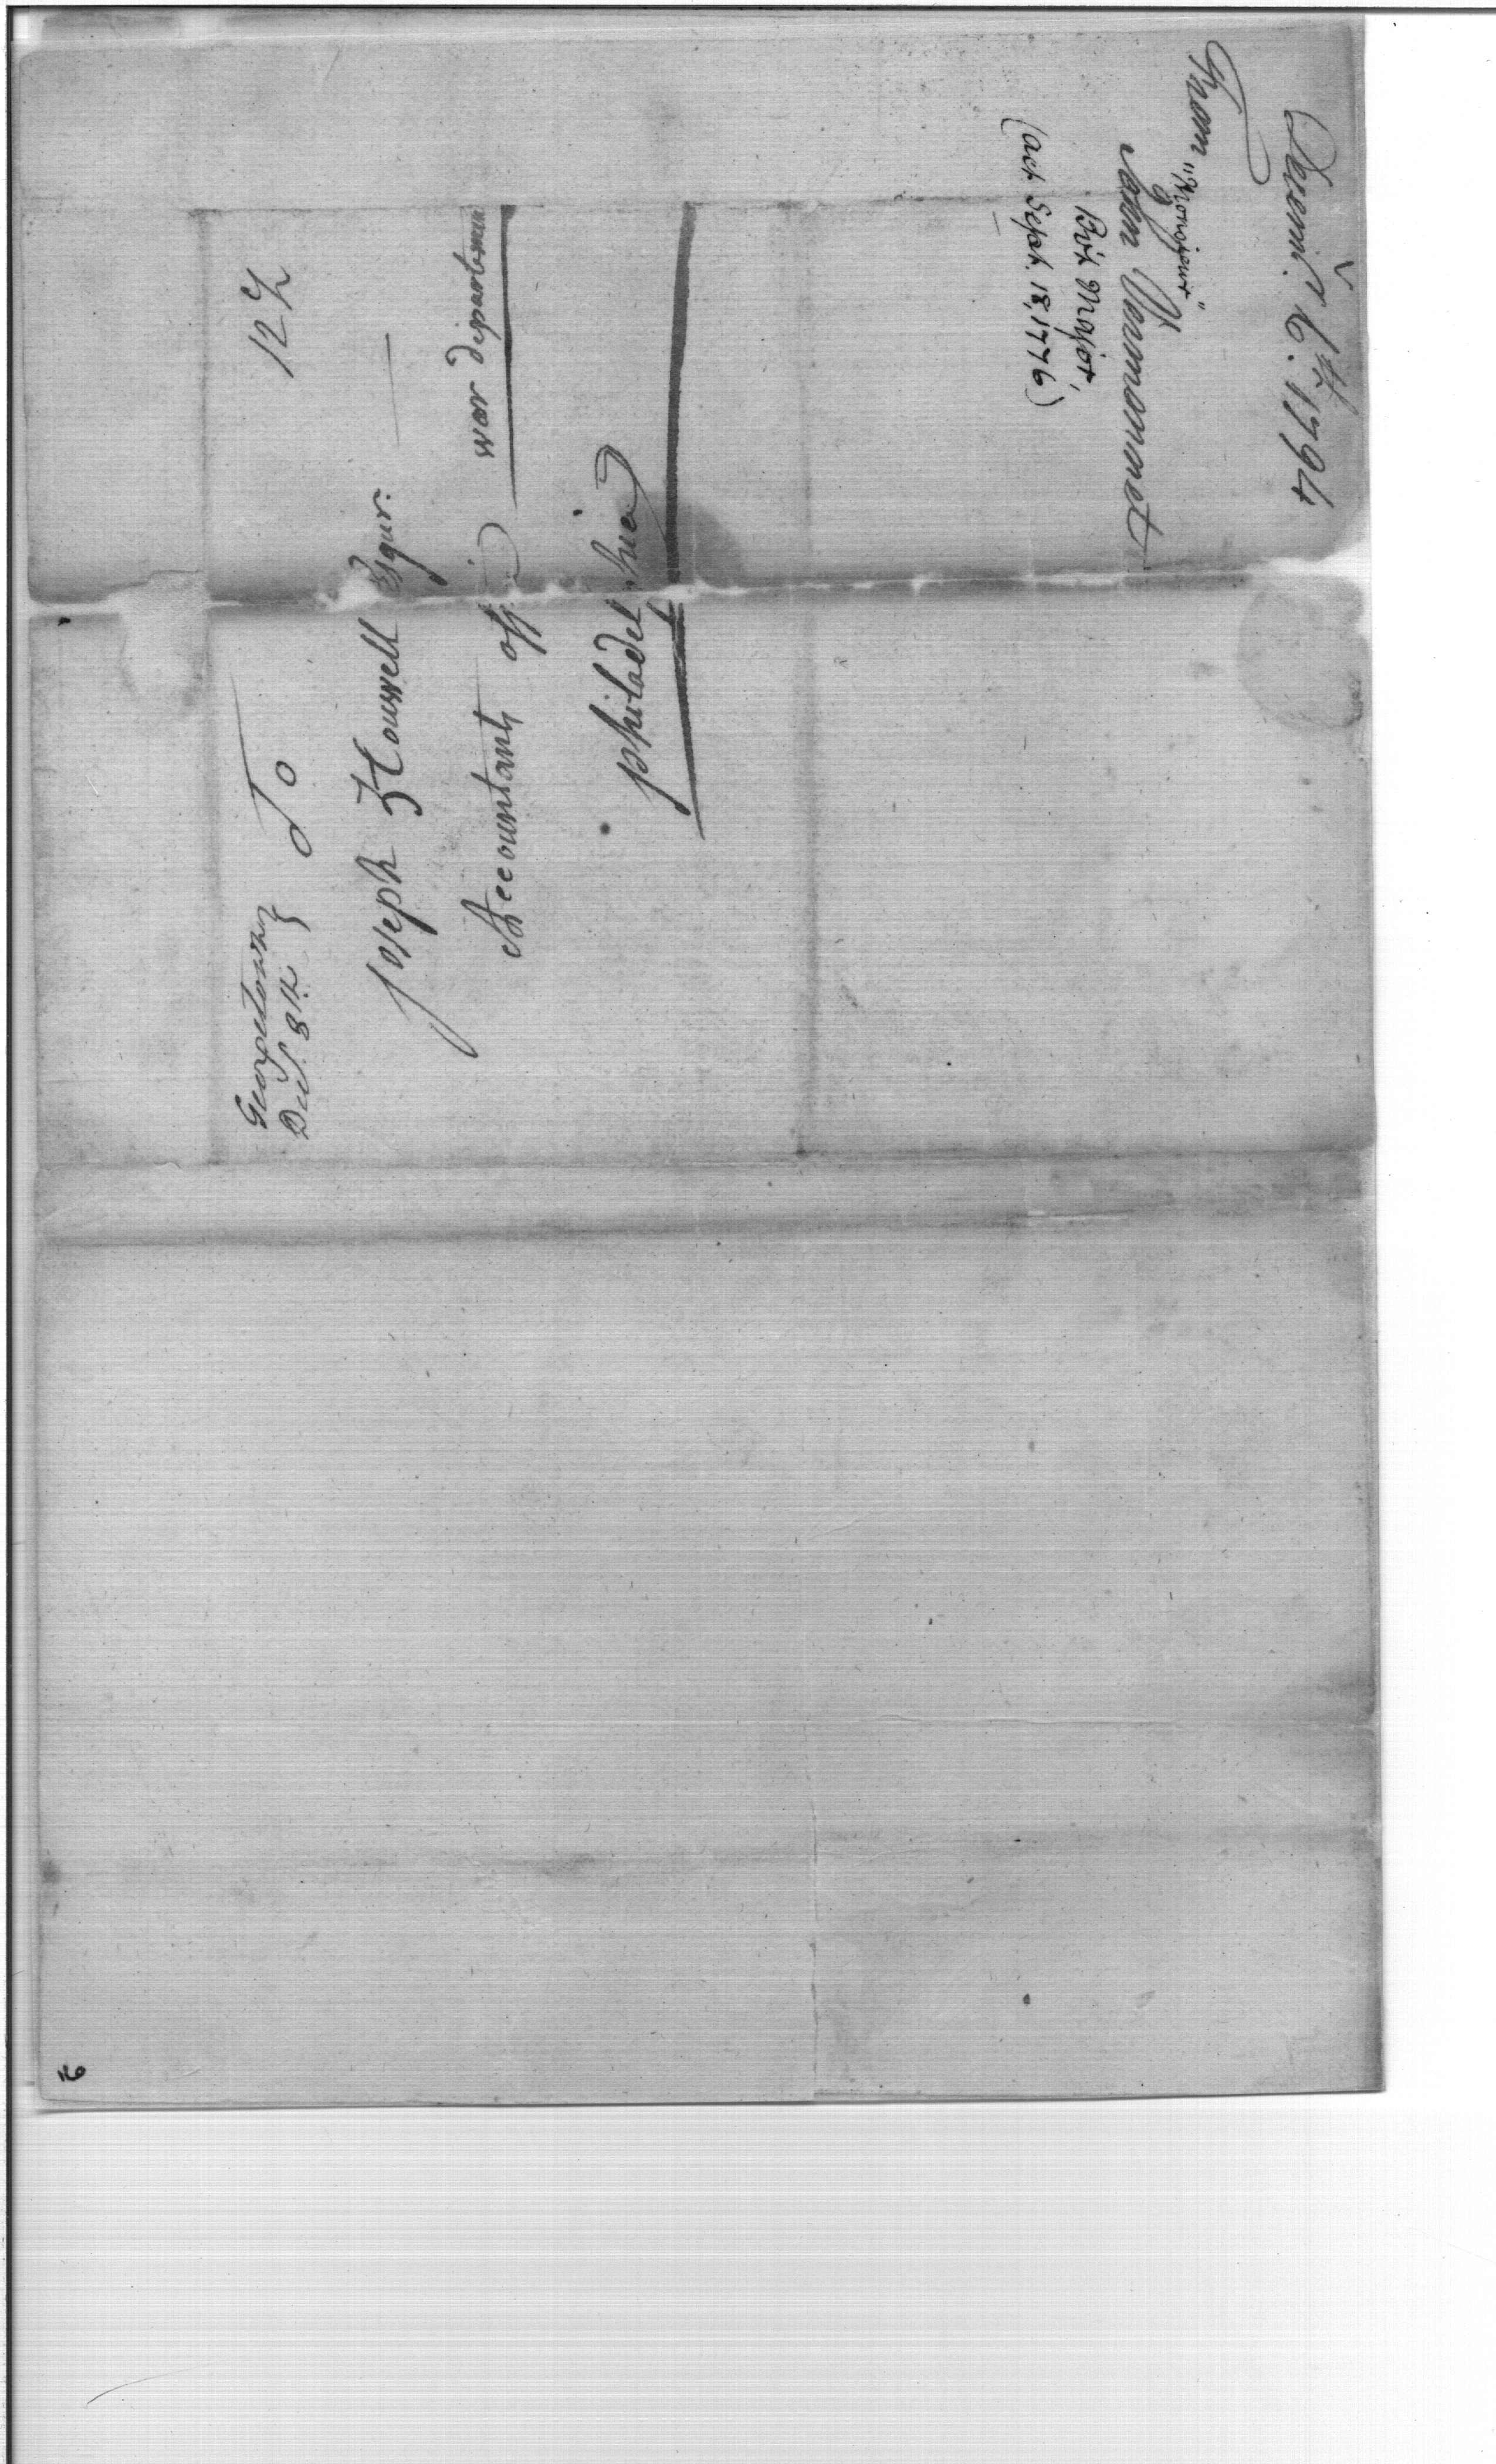 Decemr. 6th. 1794
From "Monsieur"
John Vermonnet
Bvt Major,
(act Sept. 18, 1776)
Georgetown
Decr. 8th
12½
To
Joseph Howell Esqur.
Accountant off
war department
philadelphia
6